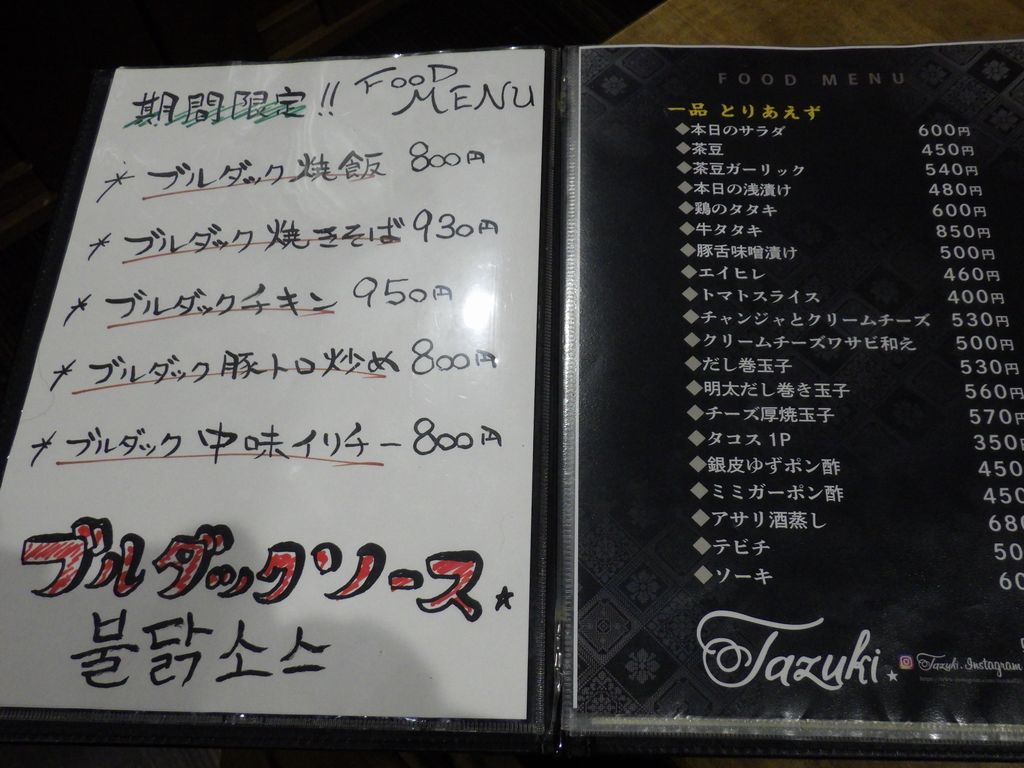 期間限定!! FOOD MENU
* ブルダック焼飯 800円
* ブルダック焼きそば 930円
* ブルダックチキン 950円
* ブルダック豚トロ炒め 800円
* ブルダック中味イリチー 800円
ブルダックソース★
불닭소스
FOOD MENU
一品 とりあえず
◆本日のサラダ 600円
◆茶豆 450円
◆茶豆ガーリック 540円
◆本日の浅漬け 480円
◆鶏のタタキ 600円
◆牛タタキ 850円
◆豚舌味噌漬け 500円
◆エイヒレ 460円
◆トマトスライス 400円
◆チャンジャとクリームチーズ 530円
◆クリームチーズワサビ和え 500円
◆だし巻玉子 530円
◆明太だし巻き玉子 560円
◆チーズ厚焼玉子 570円
◆タコス 1P 350
◆銀皮ゆずポン酢 450
◆ミミガーポン酢 450
◆アサリ酒蒸し 680
◆テビチ 50
◆ソーキ 60
Tazuki★
Tazuki.Instagram